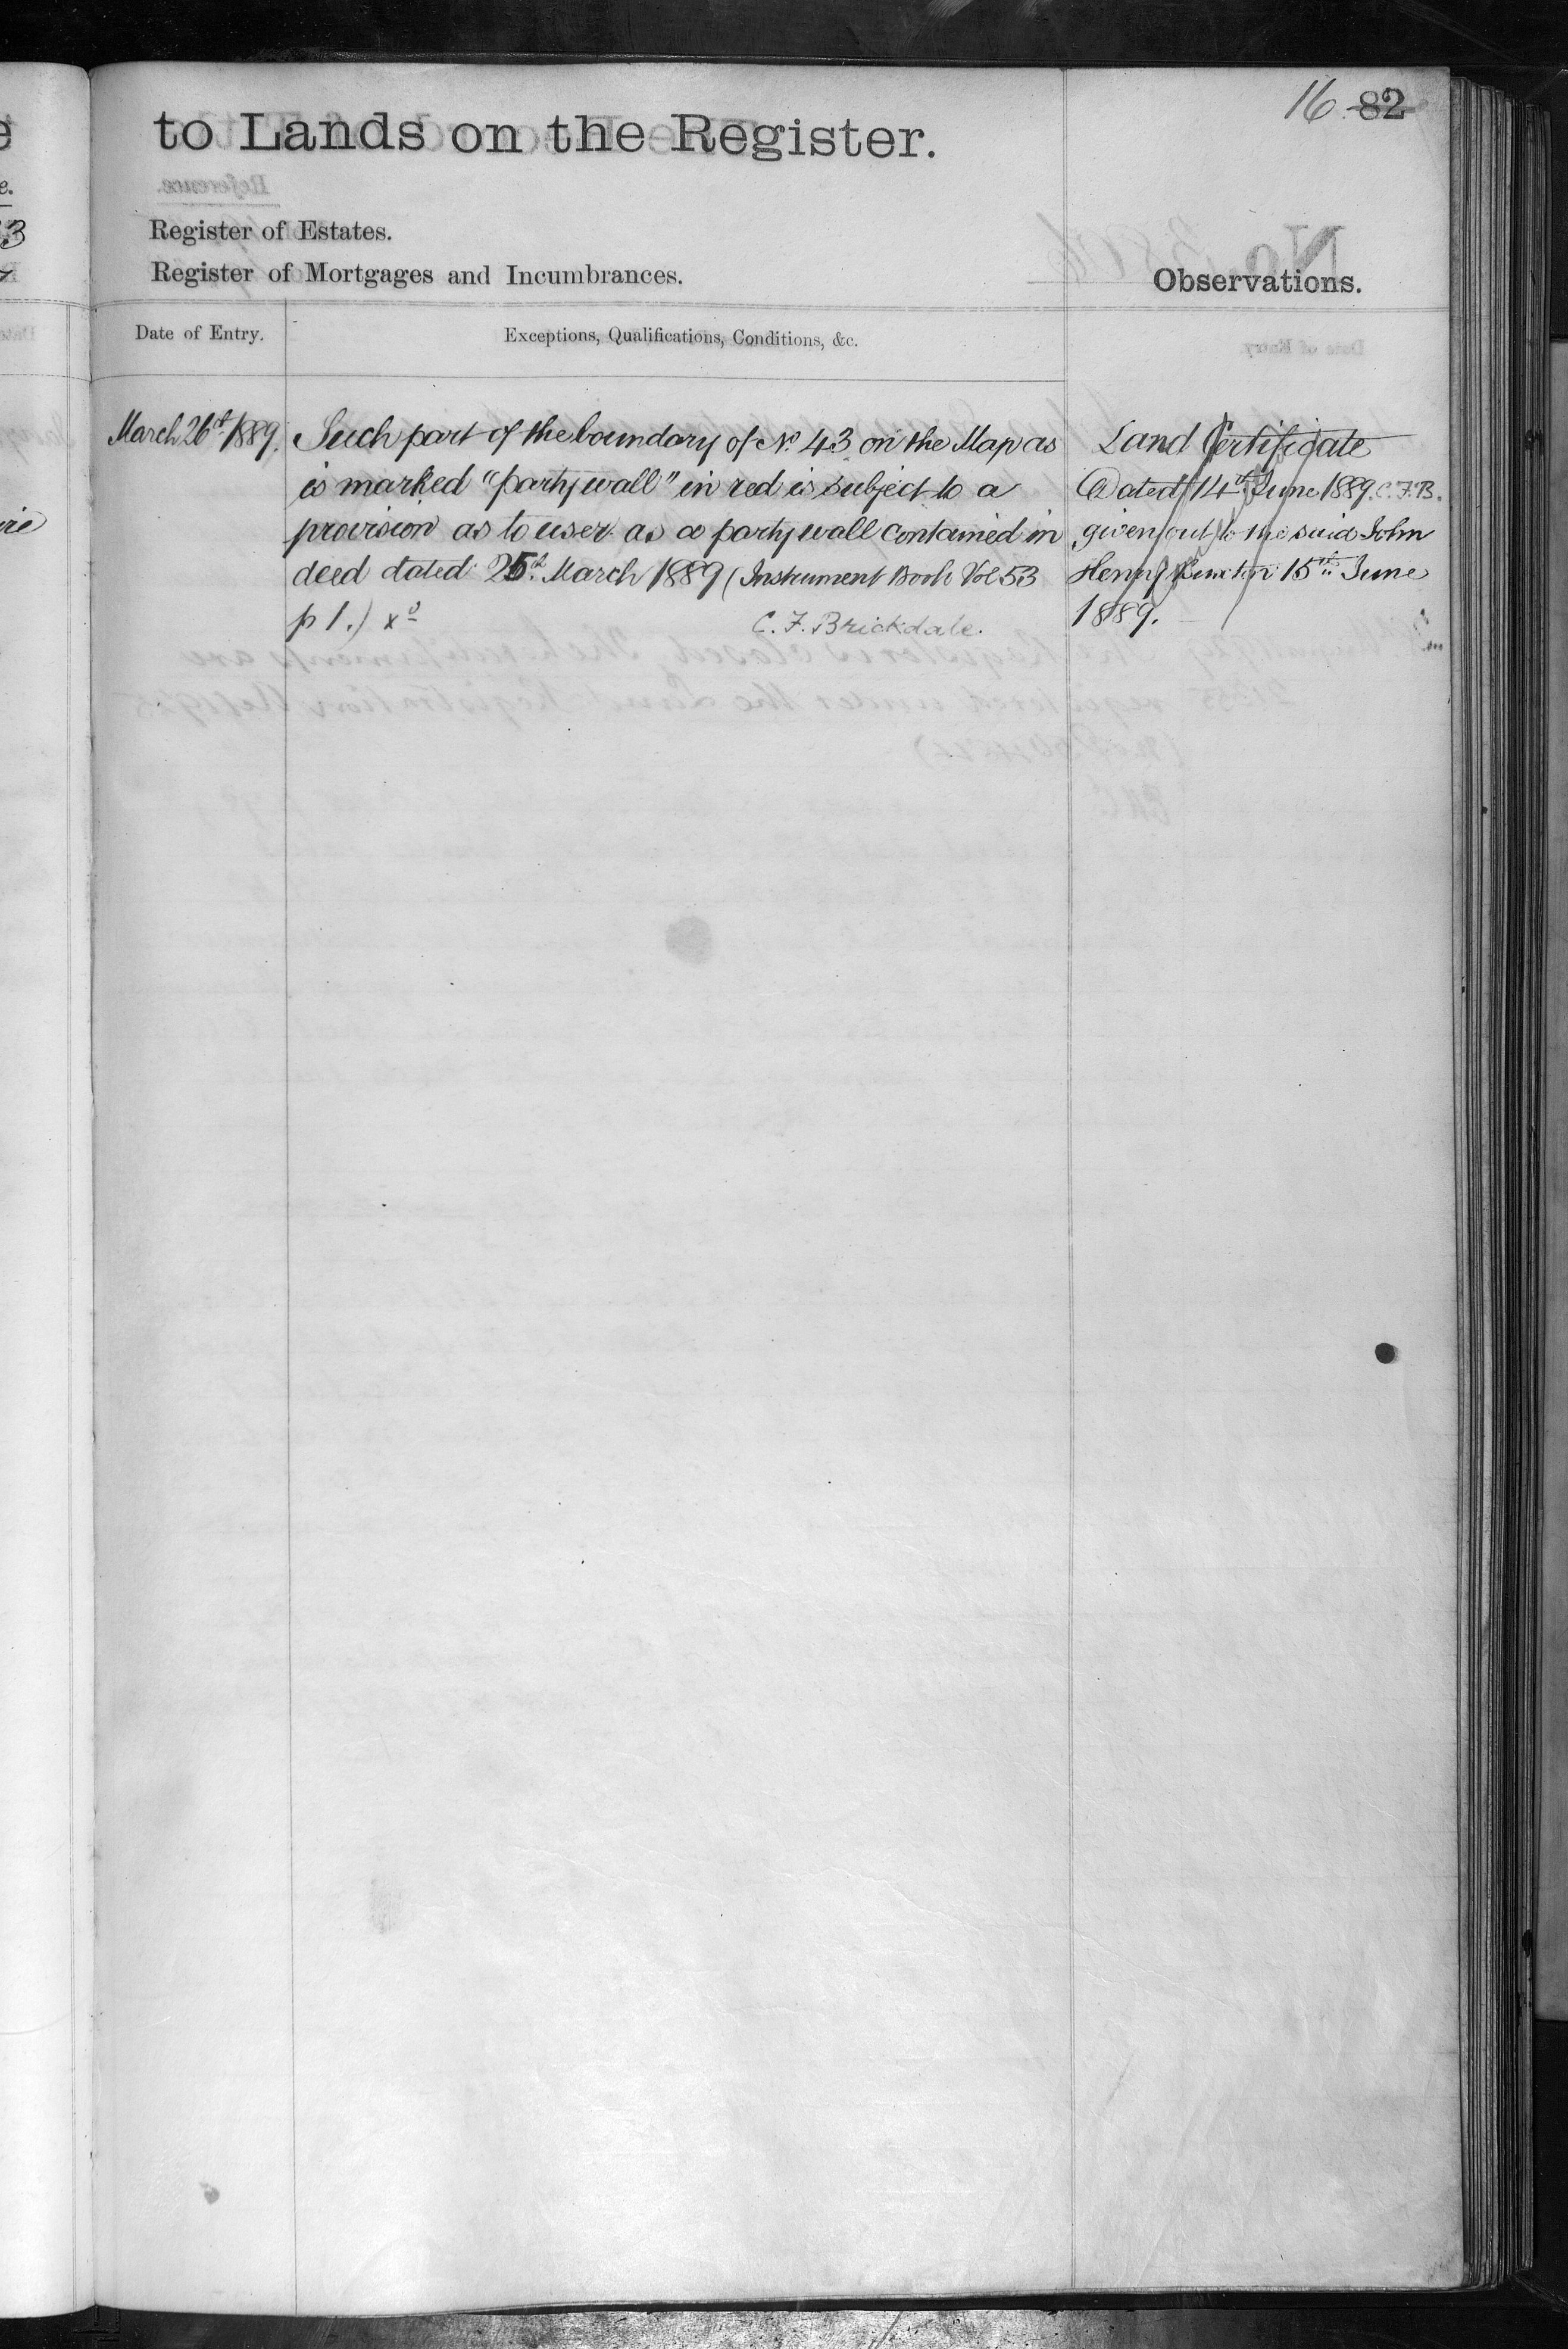 16 82
to Lands on the Register.
Register of Estates.
Register of Mortgages and Incumbrances.
Observations.
Date of Entry.
Exceptions, Qualifications, Conditions, &c.
March 26th 1889.
Such part of the boundary of No. 43 on the Map as
is marked "party wall" in red is subject to a
provision as to user as a party wall contained in
deed dated 25th March 1889 (Instrument Book Vol 53
p 1.) xd
C. F. Brickdale.
Land Certificate
Dated 14th June 1889. C.F.B.
given out to the said John
Henry Buxton 15th June
1889.